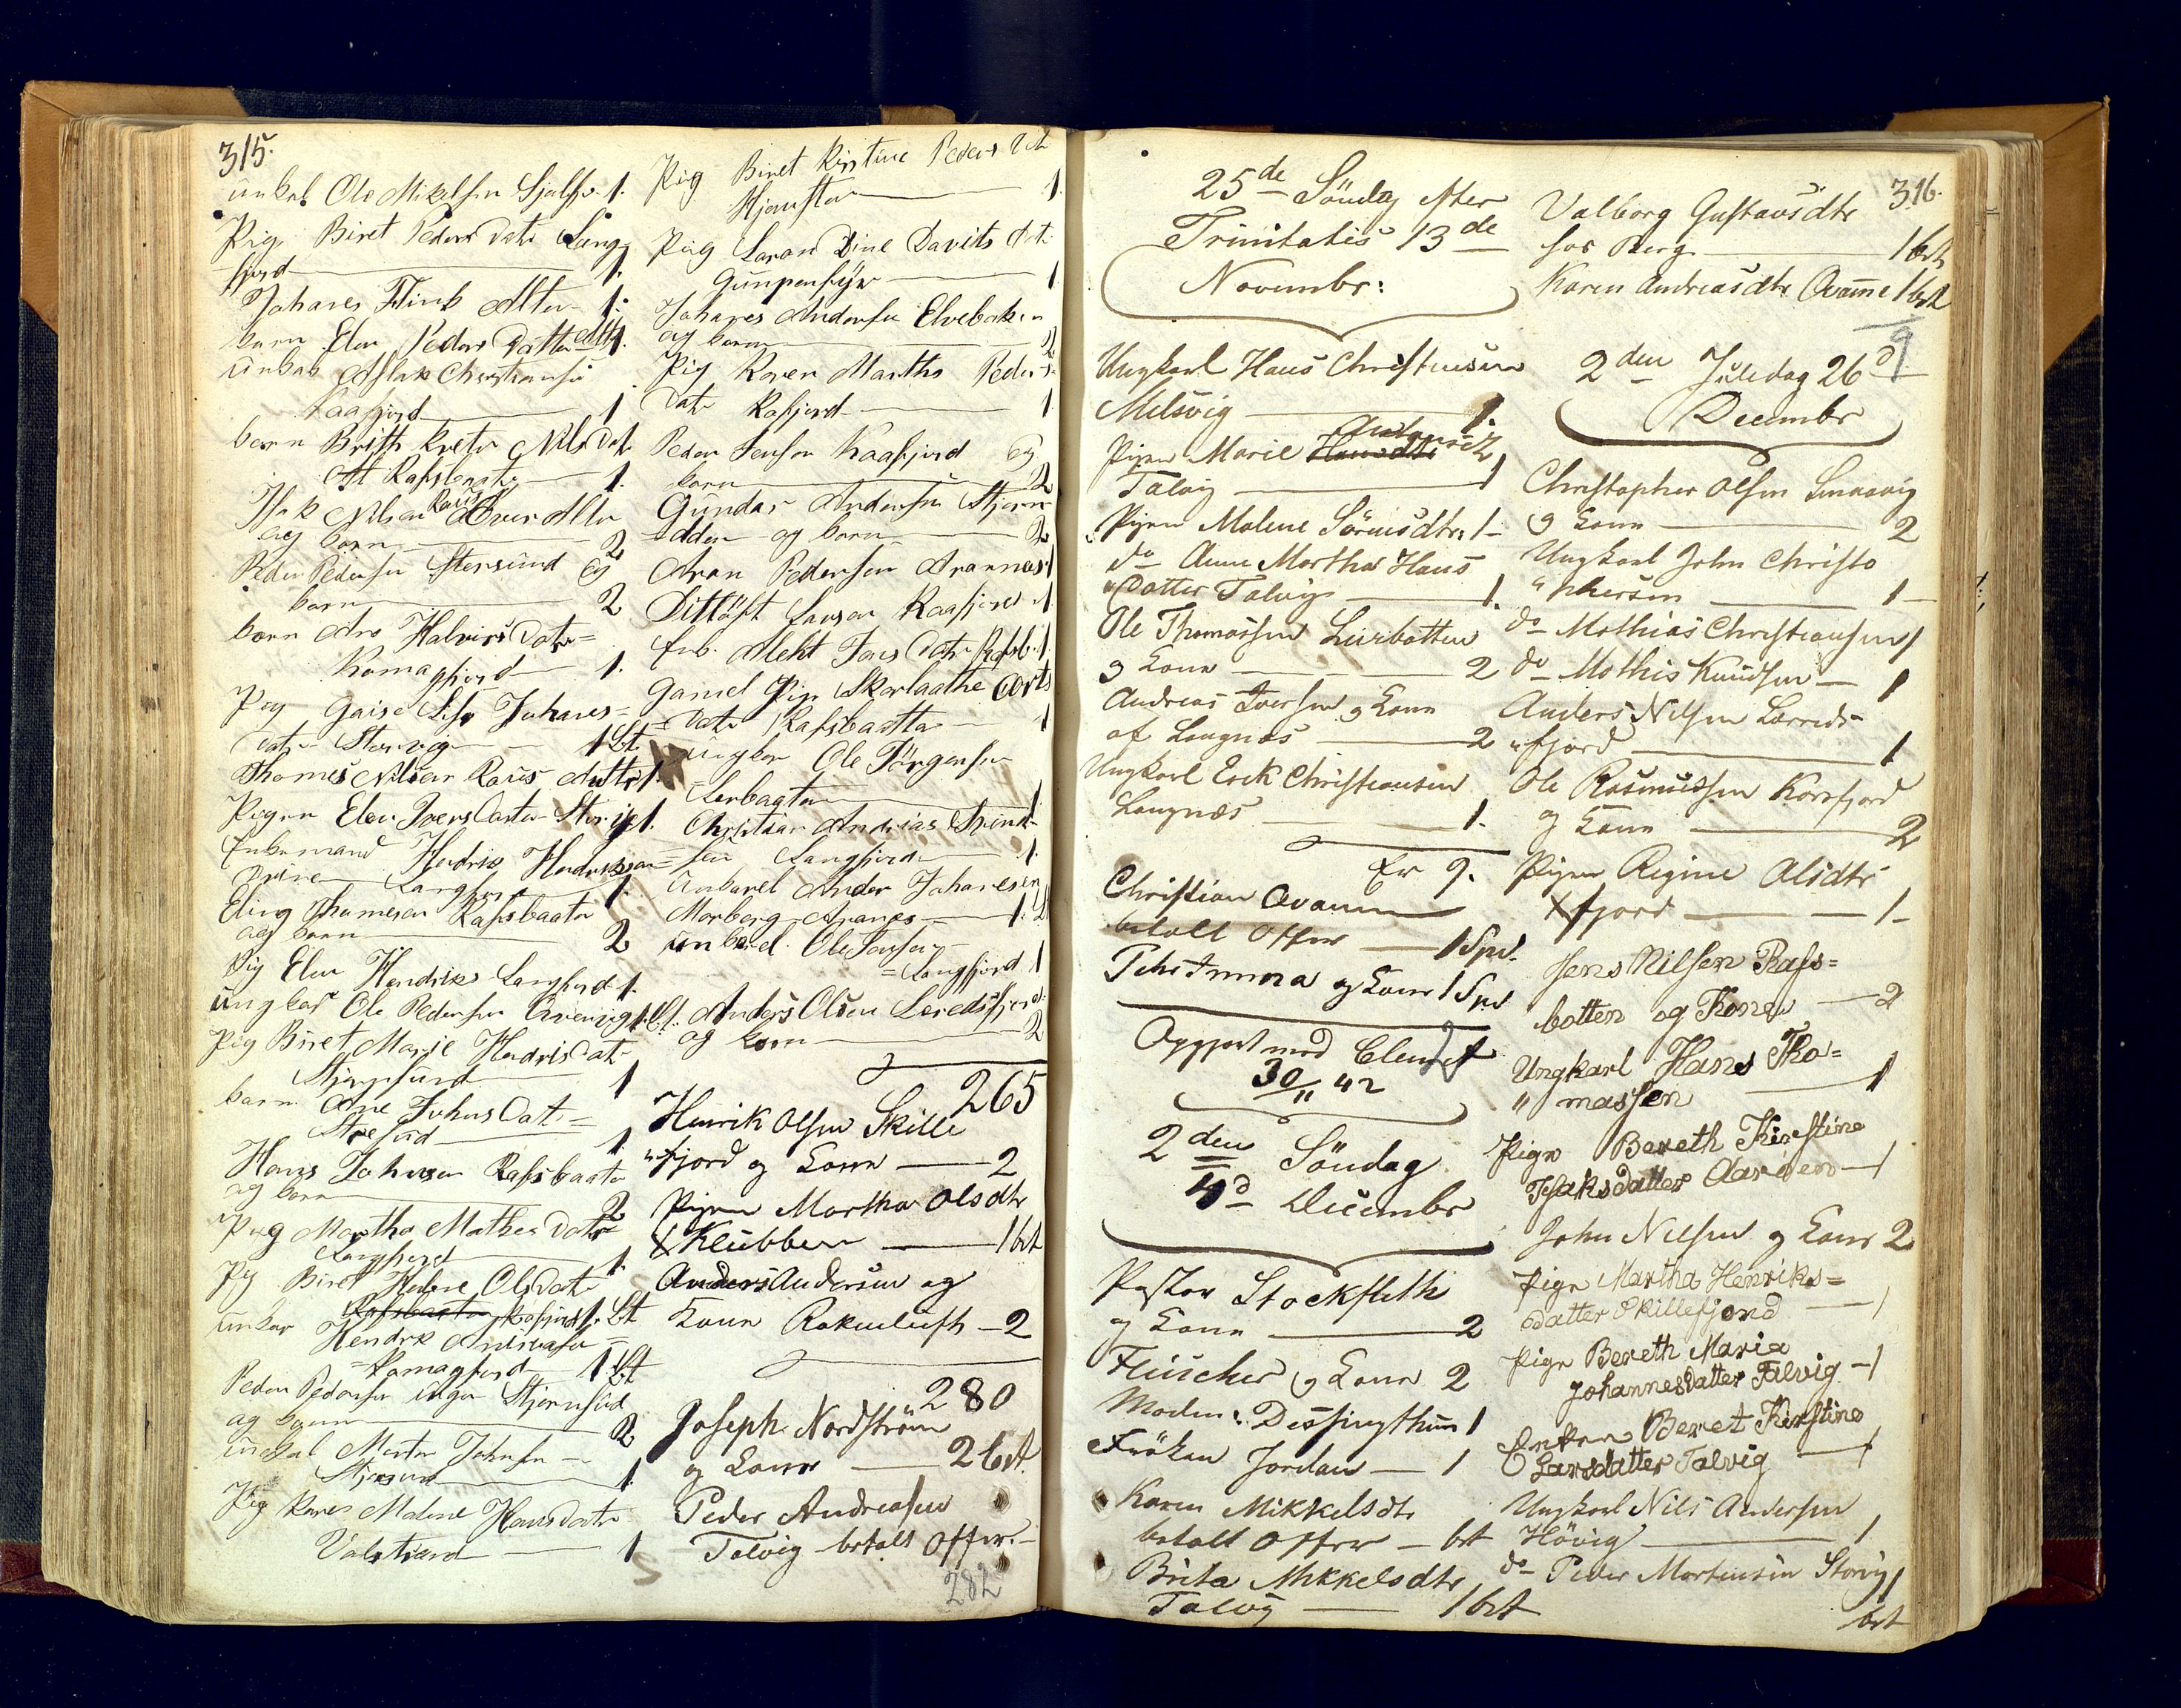 315.
unkal Ole Mikelsen 1.
Pige Biret Peders Datr Lang
fjord 1.
Johanes Flink Alten 1.
barn Elen Peders Datter Alten 1.
unkal Aslak Christiansen
Kaafjord 1
barn Brith Kreta Nils Dat
At Rafsbaatn 1.
Isak Nilsen Raus Over Alten
og konn 2
Peder Pedersen Stersund og
konn 2
barn Ane Halvirs Datr=
Komagfjord 1.
Pig Gaise Lisa Johanes=
datr Storvig 1 bt
Thomes Nilsen Raus Altn 1.
Pigen Elen Ivers Datter Storvig 1.
Enkemand Hendrik Hendriksen=
Langfjord 1.
Eling Thomesen Rafsbaatn
og konn 2
Pig Elen Hendriks Langfjord 1.
ungkar Ole Pedersen Qvenvig 1 bt.
Pig Biret Marie Hendriksdatr
Stjernsund 1
barn Ane Johns Datr=
Storfjord 1
Hans Johnsen Rafsbaatn
og konn 2
Pig Martha Mathis Datr
Langfjord 1.
Pig Biret Helene Ols Datr
Rafsbaatn Kafjord 1. bt
unkar Hendrik Andreasen
=Komagfjord 1 bt
Peder Pedersen unger Stjernsund
og konn 2
unkal Morten Johnsen
Stjernsund 1.
Pig Karen Malene Hansdatr
Valstrand 1
Pig Biret Kirstine Peders Datr
Stjernsten 1.
Pig Saran Dine Davits Datr
1
Johanes Andersen Elvebaken
og konn 2
Pig Karen Martha Peders
Datr Kafjord 1
Peder Jensen Kaafjord og
konn 2
Gundar Andersen Stjern
odden og konn 2
Aran Pedersen Arannes 1
Ditlöft Larsen Kaafjord 1
Enk. Aleht Jons Datr Rafsb. 1.
gamel Pige Skarlaathe Corts
Datr Rafsbaatta 1
ungkar Ole Jörgensen
Lerbaatn 1
Christian Andrias Svend=
sen Langfjord 1.
Unkarel Ander Johanesen
Morberg Aranes 1.
unkarel Ole Jensen
=Langfjord 1
Anders Olsen Leredsfjord
og konn 2
265
Henrik Olsen Skille
"fjord og Konn 2
Pigen Martha Olsdtr
Klubben 1 bt
Anders Andersen og
Konn Rakneluft 2
280
Joseph Nordström
og Konn 2 bet.
Peder Andreasen
Talvig betalt Offer.
282
25de Söndag efter
Trinitatis 13de
Novembr:
Ungkarl Hans Christensen
Melsvig 1.
Pigen Marie Hansdtr Andersdtr
Talvig 1
Pigen Malene Sörensdtr 1
do Anne Martha Hans
"datter Talvig 1.
Ole Thomassen Leirbotten
og Konn 2
Andreas Iversen og Konn
af Langnæs 2
Ungkarl Erik Christiansen
Langnæs 1.
Er 9.
Christian Qvanne
betalt Offer 1 Spd.
Pehr Imma og Konn 1 Spd
Opgjort med Clemet
30/11 42
2den Söndag
4d Decembr
Pastor Stockfleth
og Konn 2
Fleischer og Konn 2
Madm: Dessingthun 1
Fröken Jordan 1
Karen Mikkelsdtr
betalt Offer bet
Brita Mikkelsdtr
Talvig 1 bet
316.
Valborg Gustavsdtr
hos Berg 1 bet
Karen Andreasdtr Qvanne 1 bet
9
2den Juledag 26d
Decembr
Christopher Olsen Simavig
og Konn 2
Ungkarl John Christo
"phersen 1
do Mathias Christiansen 1
do Mathis Knudsen 1
Anders Nilsen Lerreds
"fjord 1
Ole Rasmussen Korsfjord
og Konn 2
Pigen Regine Olsdtr
fjord 1
Jens Nilsen Rafs=
botten og Kone 2
Ungkarl Hans Tho=
" massen 1
Pige Bereth Kirstine
Isaksdatter Aarøen 1
John Nilsen og Konn 2
Pige Martha Henriks=
datter Skillefjord 1
Pige Bereth Maria
Johannesdatter Talvig 1
Enken Beret Kirstine
Larsdatter Talvig 1
Ungkarl Nils Andersen
Hövig 1
do Peder Mortensen Storvig 1
bet